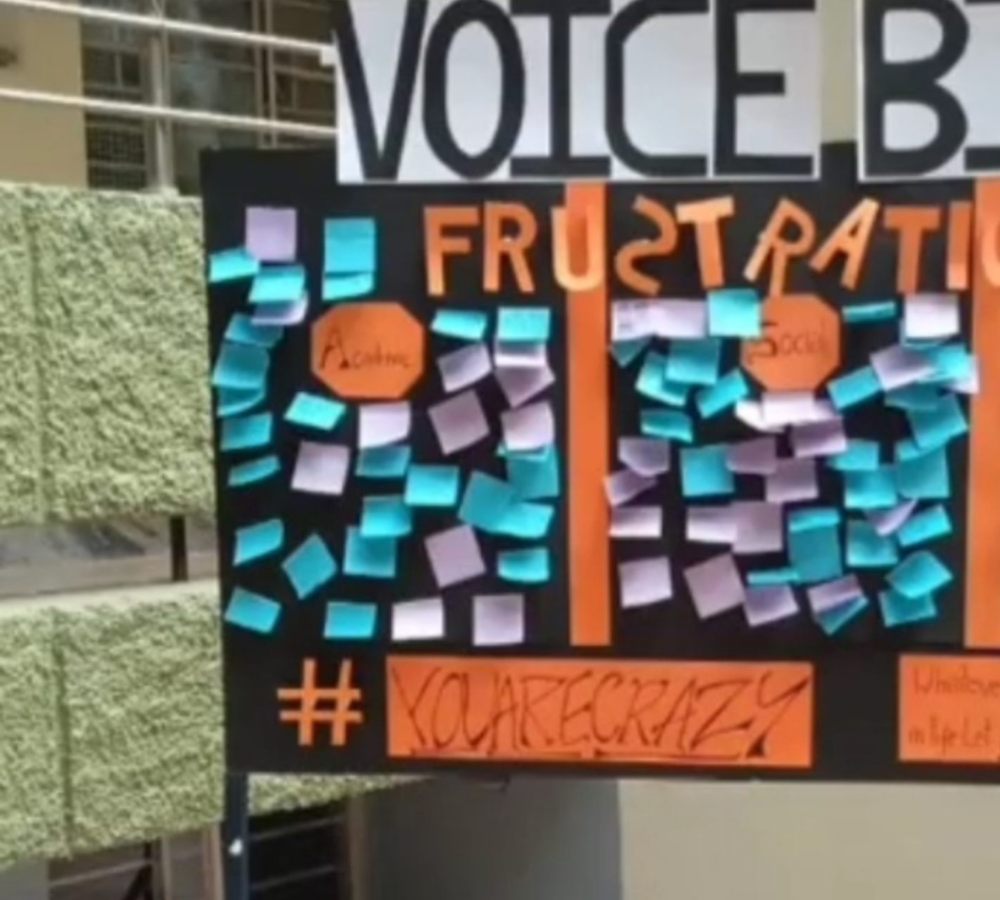 VOICE BI
FRUSTRATIO
Academic
Social
#YOUARECRAZY
Whatever
in life Let